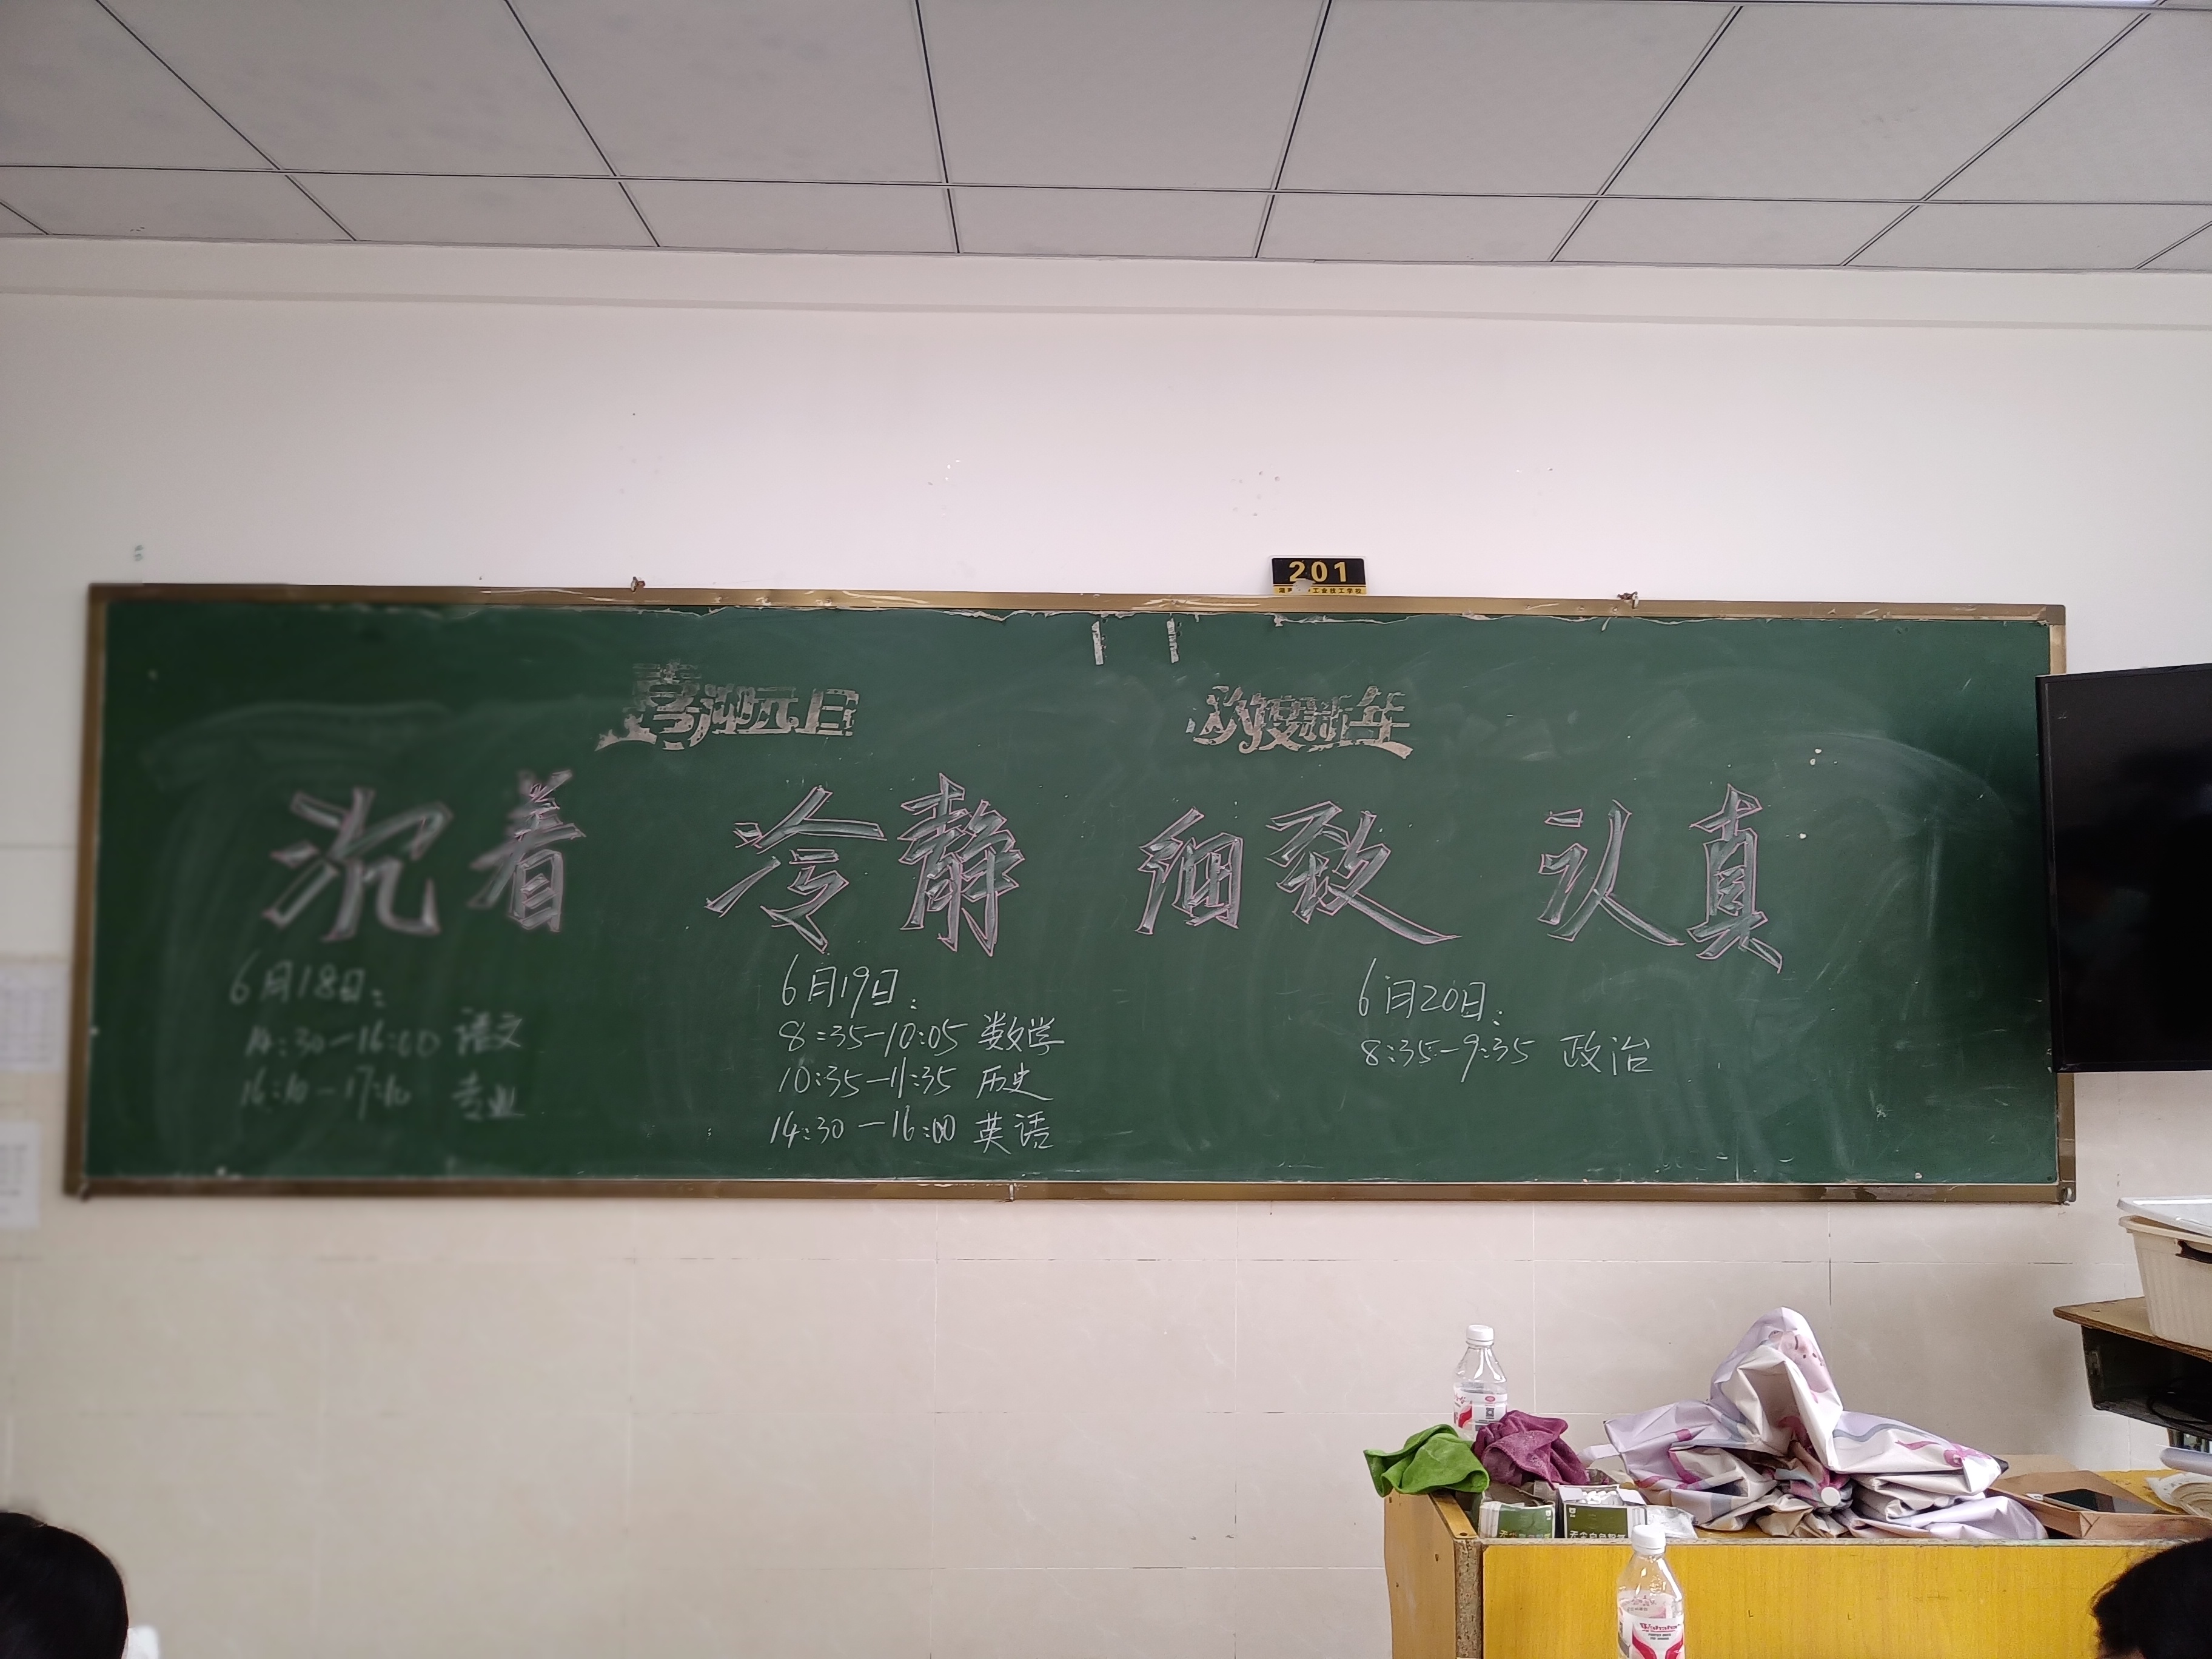 201
工业技工学校
喜迎元旦
欢度新年
沉着 冷静 细致 认真
6月18日:
14:30—16:00 语文
16:10—17:10 专业
6月19日:
8:35—10:05 数学
10:35—11:35 历史
14:30—16:00 英语
6月20日:
8:35—9:35 政治
Wahaha